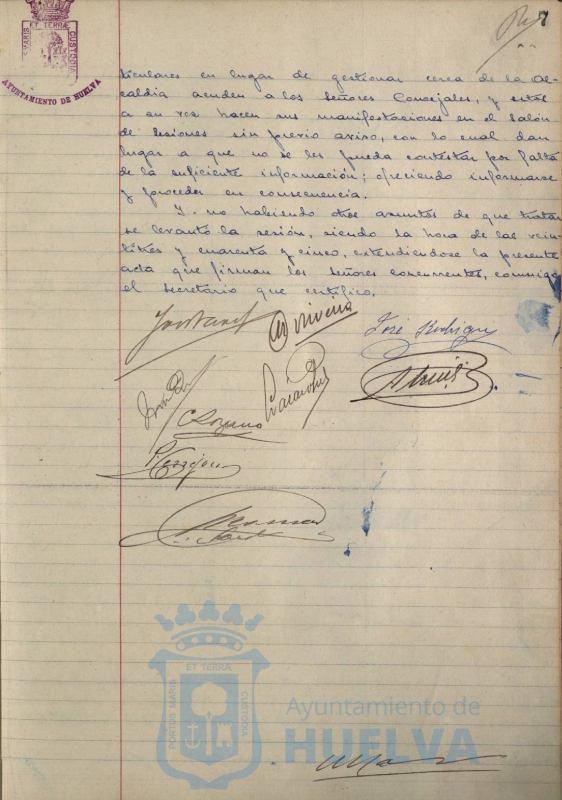 7
PORTUS MARIS ET TERRAE CUSTODIA
AYUNTAMIENTO DE HUELVA
ticulares en lugar de gestionar cerca de la Al-
caldía acuden a los señores Concejales, y estos
a su vez hacen sus manifestaciones en el salón
de sesiones sin previo aviso, con lo cual dan
lugar a que no se les pueda contestar por falta
de la suficiente información; ofreciendo informarse
y proceder en consecuencia.
Y no habiendo otros asuntos de que tratar
se levantó la sesión, siendo la hora de las vein-
titres y cuarenta y cinco, extendiéndose la presente
acta que firman los señores concurrentes, conmigo
el secretario que certifico.
José Rodríguez
C Lozano
PORTUS MARIS ET TERRAE CUSTODIA
Ayuntamiento de
HUELVA